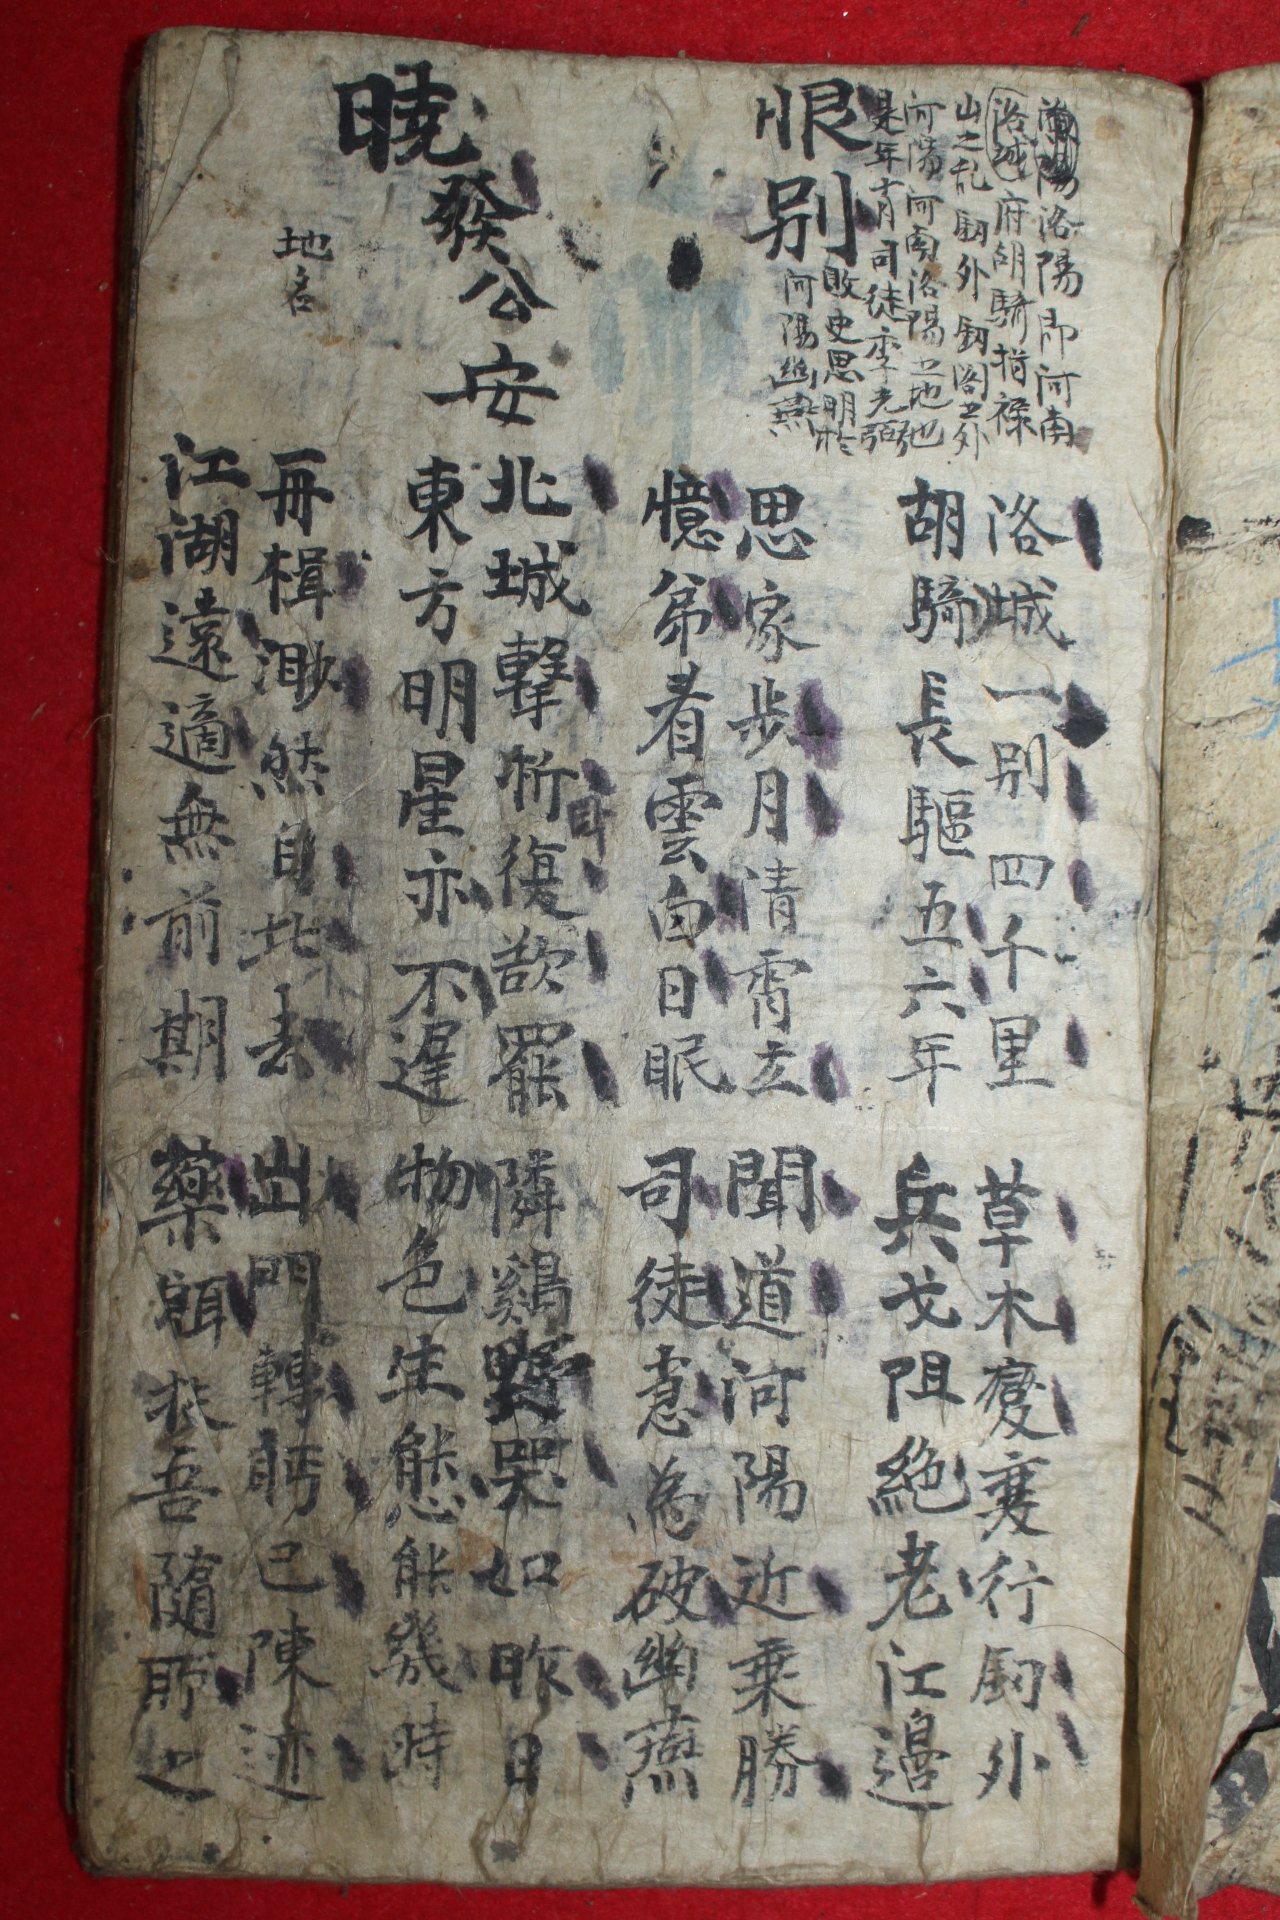 恨別
洛陽即河南
洛城
府胡騎指祿
山之乱釖外釖阁之外
河陽河南洛陽之地也
是年十月司徒李光弼
敗史思明於
河陽幽燕
洛城一別四千里
草木變衰行釖外
胡騎長驅五六年
兵戈阻絕老江邊
思家步月清霄立
聞道河陽近乗勝
憶弟看雲白日眠
司徒急為破幽燕
曉發公安
地名
北城擊柝復欲罷
隣鷄野哭如昨日
東方明星亦不遲
物色生態能幾時
舟楫渺然自此去
出門轉眄已陳迹
江湖遠適無前期
藥餌扶吾隨所之